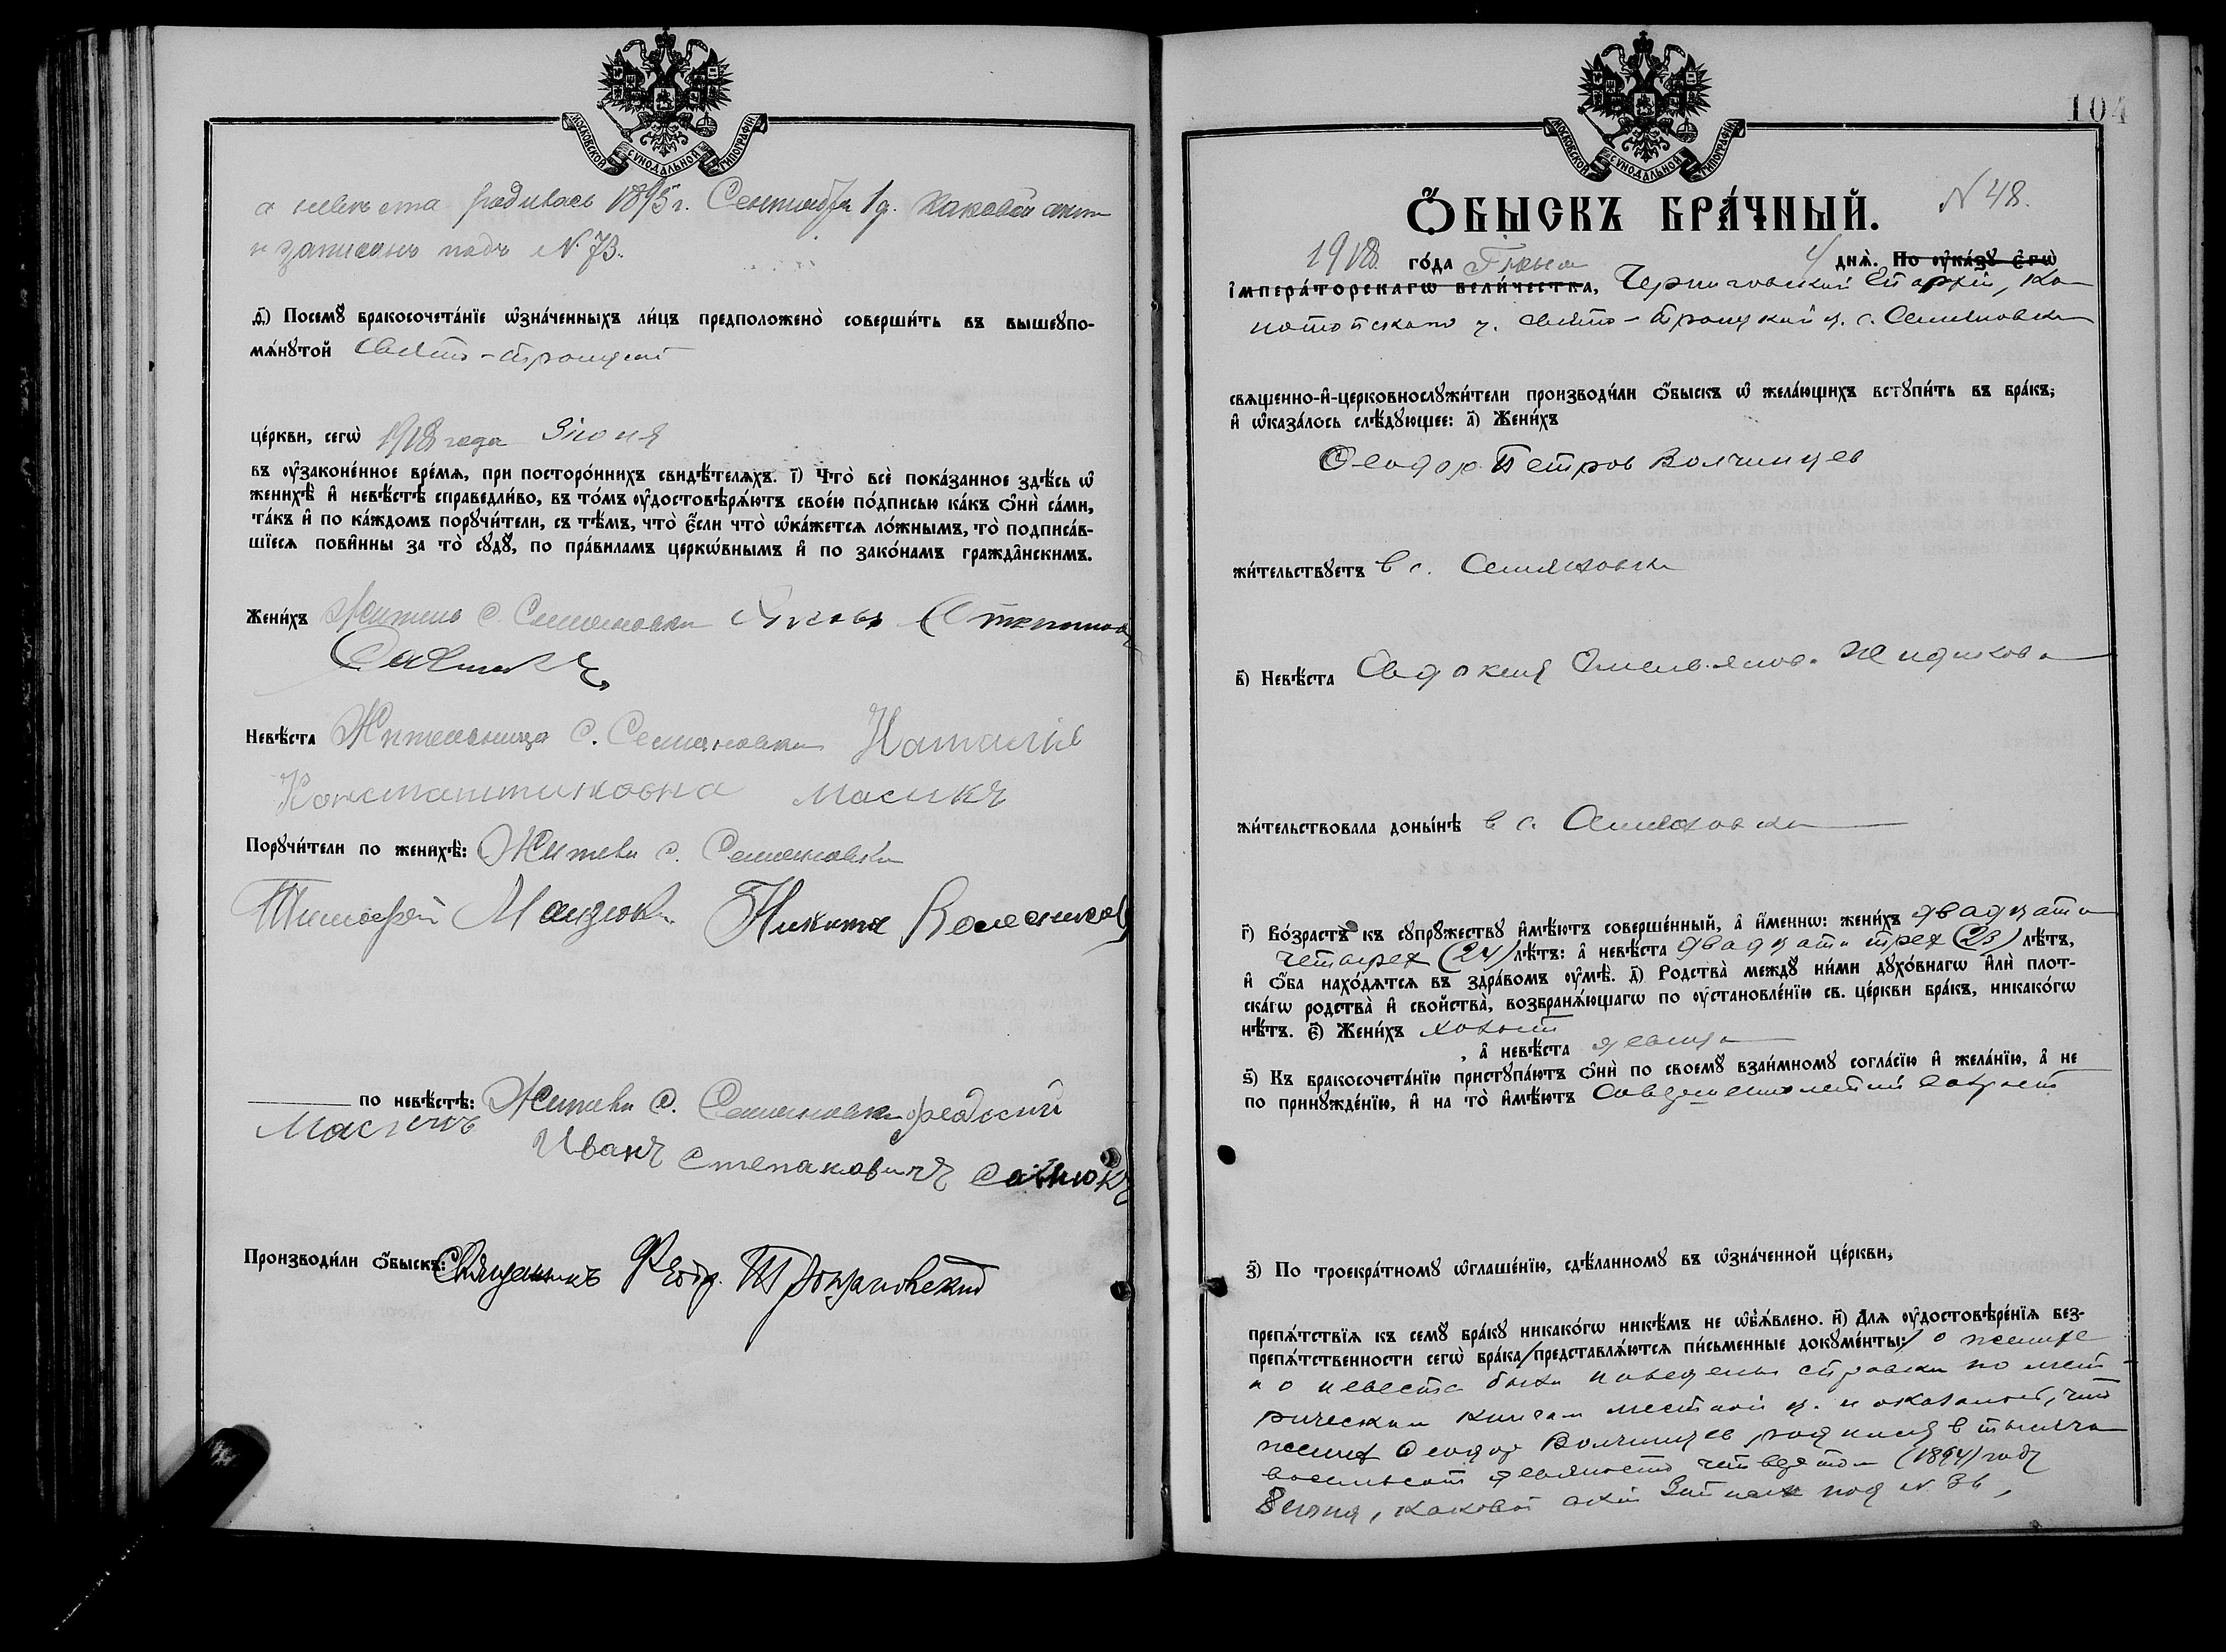 МОСКОВСКОЙ СѴНОДАЛЬНОЙ ТИПОГРАФІИ
а невѣста родилась 1895 г. Сентября 1 д. каковой актъ
и записанъ подъ № 73.
д҃і) Посемꙋ бракосочета́нїе ѡзна́ченныхъ ли́цъ предположено̀ соверши́ть въ вышеупо-
мѧ́нꙋтой Свято-Троицкой
це́ркви, сегѡ̀ 1918 года 3 іюня
въ ᲂу҆законе́нное вре́мѧ, при посторо́ннихъ свидѣ́телѧхъ. і҃) Что̀ всѐ пока́занное здѣ́сь ѡ҆
женихѣ̀ и҆ невѣ́стѣ справедли́во, въ то́мъ ᲂу҆достовѣрѧ́ютъ свое́ю по́дписью ка́къ ѻ҆нѝ са́ми,
та́къ и҆ по ка́ждомъ порꙋчи́тели, съ тѣ́мъ, что̀ є҆́сли что̀ ѡ҆ка́жетсѧ ло́жнымъ, то̀ подписа́в-
шїесѧ пови́нны за то̀ сꙋдꙋ̀, по пра́виламъ церко́внымъ и҆ по зако́намъ гражда́нскимъ.
Жени́хъ Житель с. Семеновки Степанов
Невѣ́ста Жительница с. Семяновки Наталія
Константиновна Масикъ
Порꙋчи́тели по женихѣ̀: Жители с. Семеновки
Тимофей Мандюк Никита Колесников
по невѣ́стѣ: Жители с. Семеновки
Масикъ
Иванъ Степановичъ Савнюкъ
Производи́ли ѻ҆́быскъ: Священникъ Феод. Трояновский
104
МОСКОВСКОЙ СѴНОДАЛЬНОЙ ТИПОГРАФІИ
Ѻ҆́БЫСКЪ БРА́ЧНЫЙ. N 48.
1918 го́да Іюня 4 днѧ̀. По ᲂу҆ка́зꙋ є҆гѡ̀
і҆мпера́торскагѡ вели́чества, Черниговской Епархіи, Ко-
нотопскаго у. Свято-Троицкой ц. с. Семяновки
свѧще́нно-и҆-церковнослꙋжи́тели производи́ли ѻ҆́быскъ ѡ҆ жела́ющихъ встꙋпи́ть въ бра́къ,
и҆ ѡ҆каза́лось слѣ́дꙋющее: а҃) Жени́хъ
Феодор Петров Волчинцев
жи́тельствꙋетъ в с. Семяновки
в҃) Невѣ́ста Евдокия Омельянов. Жидкова
жи́тельствовала доны́нѣ в с. Семяновки
г҃) Во́зрастъ къ сꙋпрꙋ́жествꙋ и҆мѣ́ютъ соверше́нный, а҆ и҆́менно: жени́хъ двадцати
четырех (24) лѣ́тъ: а҆ невѣ́ста двадцати трех (23) лѣ́тъ,
и҆ ѻ҆́ба нахо́дѧтсѧ въ здра́вомъ ᲂу҆мѣ̀. д҃) Родства̀ междꙋ̀ ни́ми дꙋхо́внагѡ и҆лѝ плот-
ска́гѡ родства̀ и҆ сво́йства̀, возбранѧ́ющагѡ по ᲂу҆становле́нїю св. це́ркви бра́къ, никако́гѡ
нѣ́тъ. є҃) Жени́хъ холост
, а҆ невѣ́ста девица
ѕ҃) Къ бракосочета́нїю пристꙋпа́ютъ ѻ҆нѝ по своемꙋ̀ взаи́мномꙋ согла́сїю и҆ жела́нїю, а҆ не
по принꙋжде́нїю, и҆ на то̀ и҆мѣ́ютъ совершеннолетний возраст
з҃) По троекра́тномꙋ ѡ҆глаше́нїю, сдѣ́ланномꙋ въ ѡ҆зна́ченной це́ркви,
препѧ́тствїѧ къ семꙋ̀ бра́кꙋ никако́гѡ никѣ́мъ не ѡ҆б̾ѧ́влено. и҃) Длѧ ᲂу҆достовѣре́нїѧ без-
препѧ́тственности сегѡ̀ бра́ка/представлѧ́ютсѧ пи́сьменные докꙋме́нты:/ о женихе
и о невесте были наведены справки по мет-
рическим книгам местной ц. и оказалось, что
жених Феодор Волчинцев родился в тысяча
восемьсот девяносто четвертом (1894) году
8 июня, каковой акт записан под N. 36,